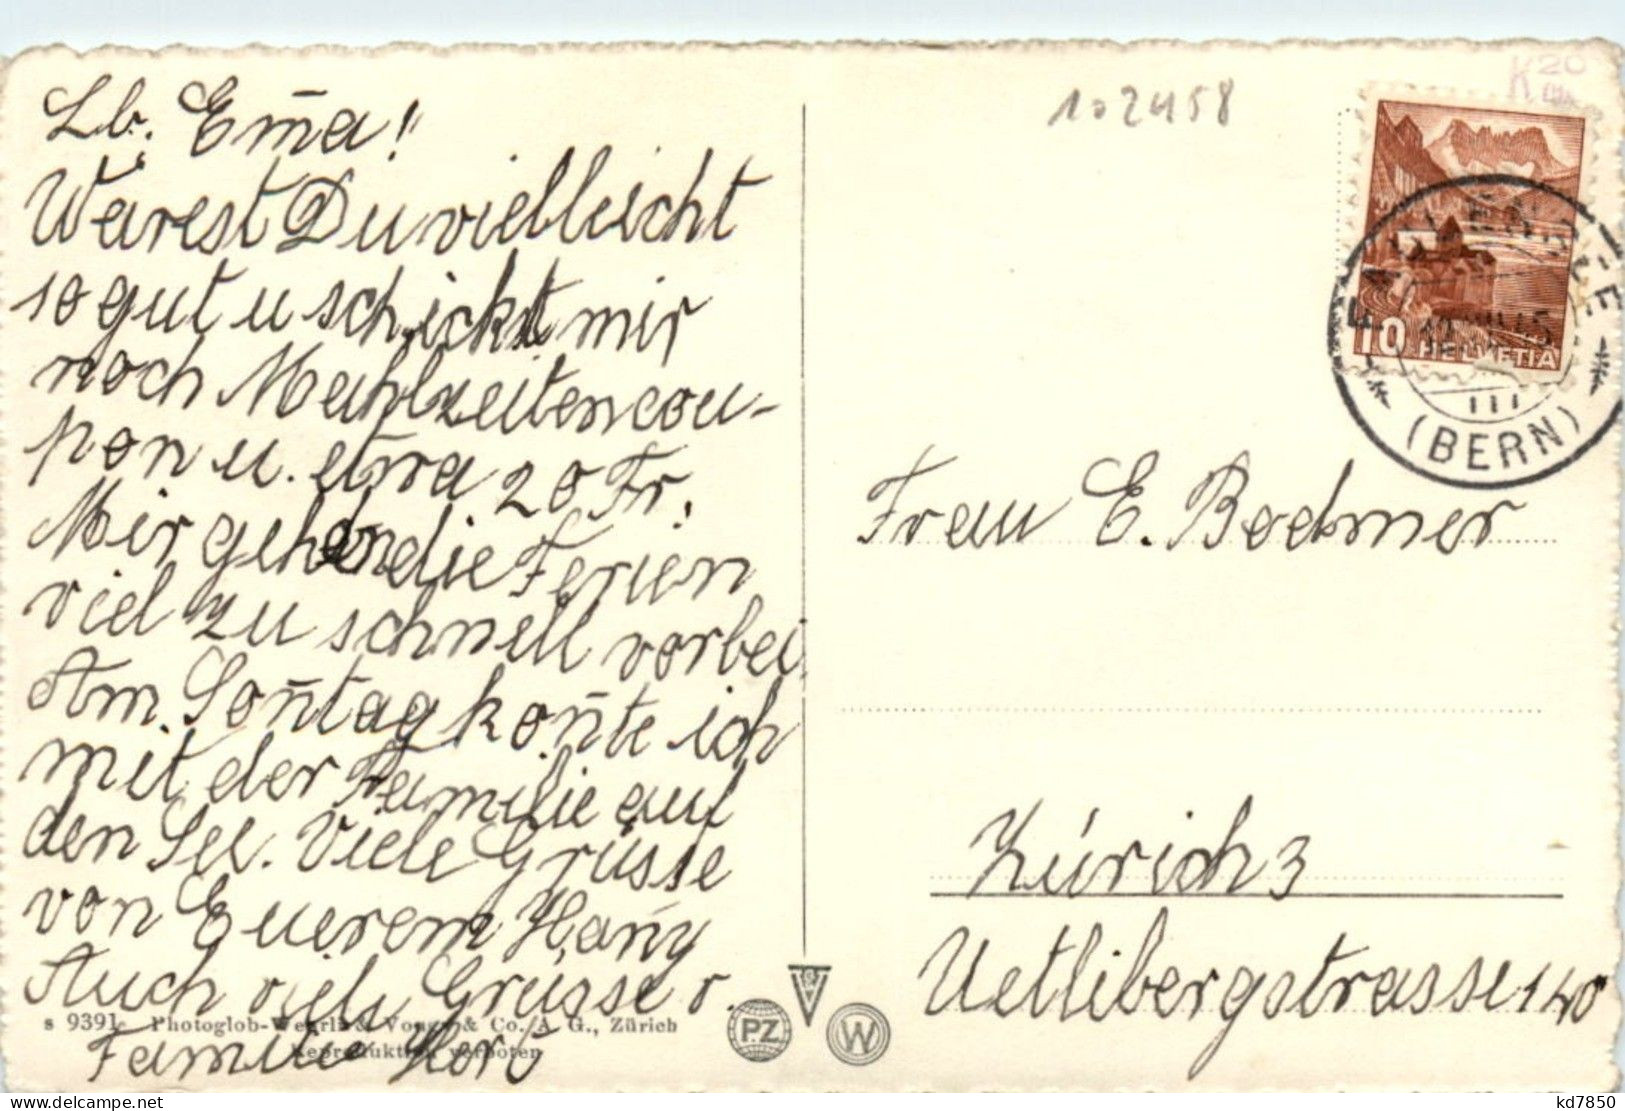 Lb. Em̄a!
Warest Du vielleicht
so gut u schickst mir
noch Mahlzeitencou-
pon u. etwa 20 Fr.
Mir gehen die Ferien
viel zu schnell vorbei.
Am Son̄tag kon̄te ich
mit der Familie auf
den See. Viele Grüsse
von Euerem Han̄y
Auch viele Grüsse v.
Familie Hort
s 9391 Photoglob-Wehrli & Vouga & Co. A. G., Zürich
Reproduktion verboten
PZ
W
102458
K 20
10 HELVETIA
FAULENSEE
(BERN)
Frau E. Bodmer
Zürich 3
Uetlibergstrasse 140
www.delcampe.net
kd7850